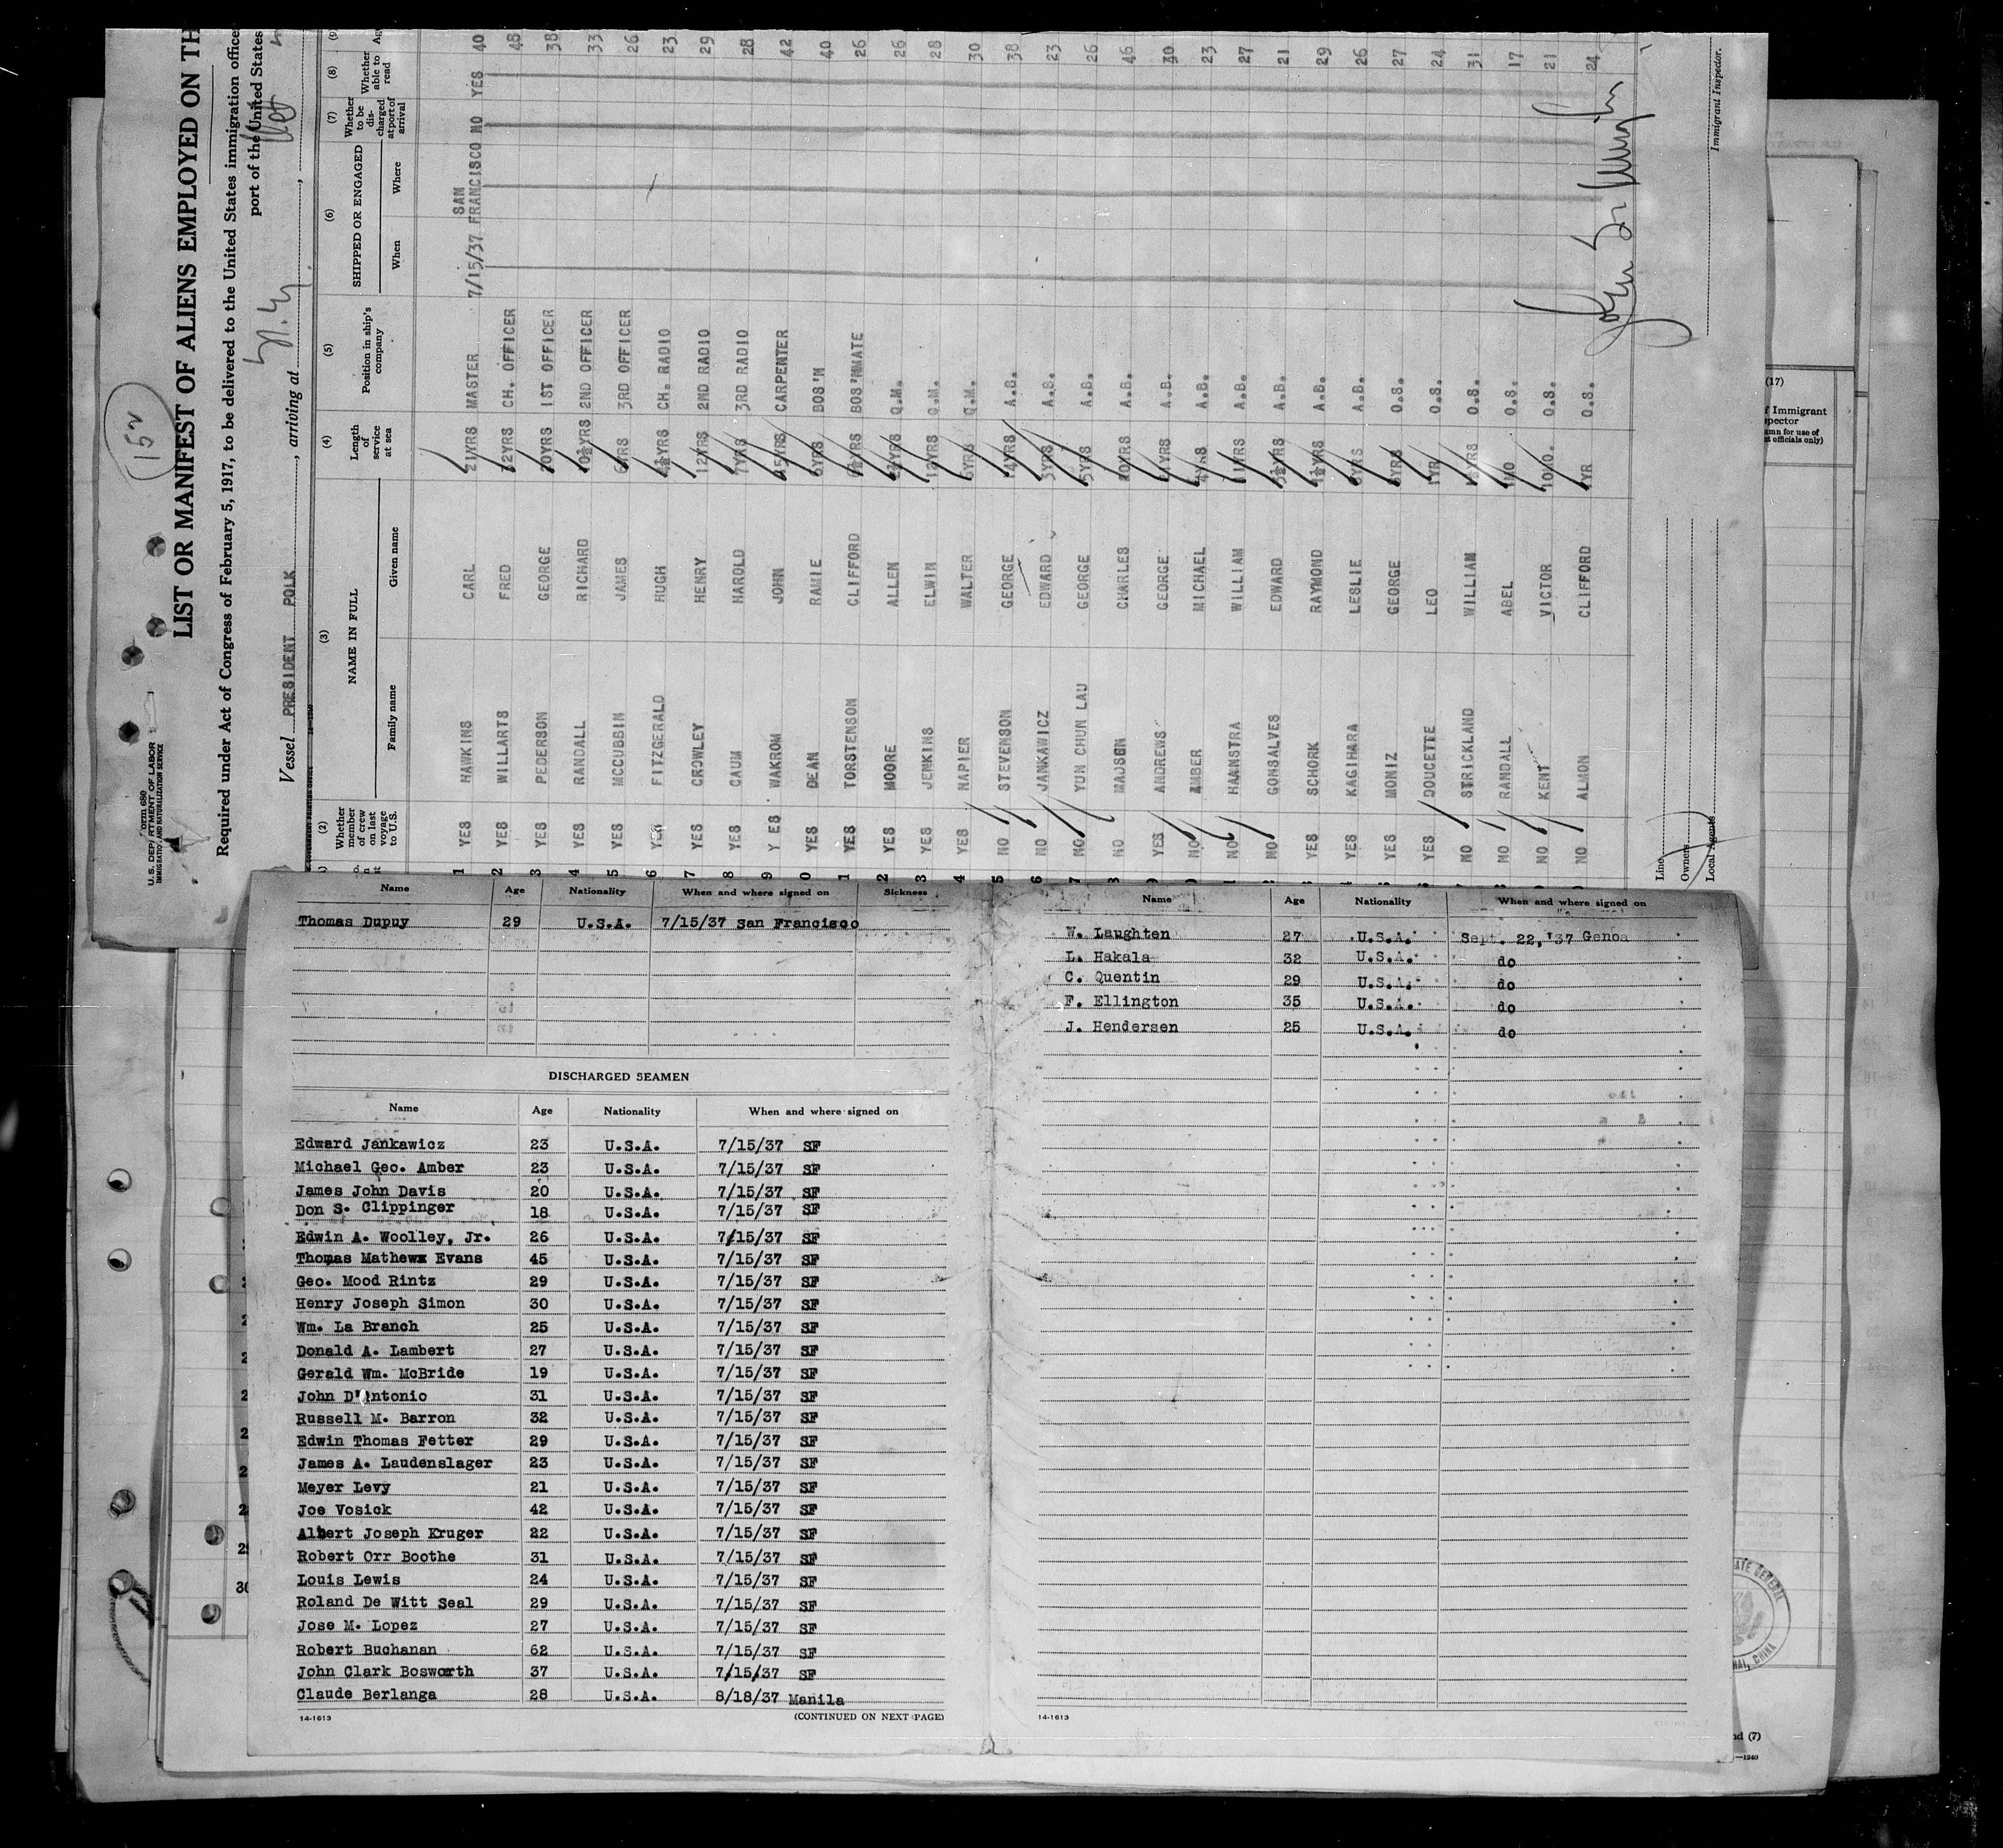 LIST OR MANIFEST OF ALIENS EMPLOYED ON TH
Required under Act of Congress of February 5, 1917, to be delivered to the United States immigration officer
port of the United States
U.S. DEPARTMENT OF LABOR
IMMIGRATION AND NATURALIZATION SERVICE
152
Vessel PRESIDENT POLK, arriving at N.Y.
(2) (3) (4) (5) (6) (7) (8) (9)
Whether member of crew on last voyage to U.S.
NAME IN FULL
Family name Given name
Length of service at sea
Position in ship's company
SHIPPED OR ENGAGED
When Where
Whether to be discharged at port of arrival
Whether able to read
1 YES HAWKINS CARL 21YRS MASTER 7/15/37 SAN FRANCISCO NO YES 40
2 YES WILLARTS FRED 32YRS CH. OFFICER 48
3 YES PEDERSON GEORGE 20YRS 1ST OFFICER 38
4 YES RANDALL RICHARD 10½YRS 2ND OFFICER 33
5 YES MCCUBBIN JAMES 6YRS 3RD OFFICER 26
6 YES FITZGERALD HUGH 4½YRS CH. RADIO 23
7 YES CROWLEY HENRY 12YRS 2ND RADIO 29
8 YES CAUM HAROLD 7YRS 3RD RADIO 28
9 YES WAKROM JOHN 45YRS CARPENTER 42
0 YES DEAN RAMIE YRS BOS'N 40
1 YES TORSTENSON CLIFFORD YRS BOS'NMATE 26
2 YES MOORE ALLEN YRS Q.M. 26
3 YES JENKINS ELWIN 12YRS Q.M. 28
4 YES NAPIER WALTER YRS Q.M. 30
5 NO STEVENSON GEORGE 14YRS A.B. 38
6 NO JANKAWICZ EDWARD 3YRS A.B. 23
7 NO YUN CHUN LAU GEORGE 5YRS A.B. 26
NO MADSEN CHARLES 20YRS A.B. 46
9 YES ANDREWS GEORGE YRS A.B. 40
0 NO AMBER MICHAEL 4YRS A.B. 23
1 NO HAANSTRA WILLIAM 11YRS A.B. 27
NO GONSALVES EDWARD 3½YRS A.B. 21
YES SCHORK RAYMOND YRS A.B. 29
4 YES KAGIHARA LESLIE YRS A.B. 26
YES MONIZ GEORGE YRS O.S. 27
YES DOUCETTE LEO 1YR O.S. 24
NO STRICKLAND WILLIAM YRS O.S. 31
NO RANDALL ABEL MO O.S. 17
NO KENT VICTOR 10MO. O.S. 21
NO ALMON CLIFFORD YR O.S. 24
Immigrant Inspector.
Line
Owners
Local Agents
Name Age Nationality When and where signed on Sickness
Thomas Dupuy 29 U.S.A. 7/15/37 San Francisco
DISCHARGED SEAMEN
Name Age Nationality When and where signed on
Edward Jankawicz 23 U.S.A. 7/15/37 SF
Michael Geo. Amber 23 U.S.A. 7/15/37 SF
James John Davis 20 U.S.A. 7/15/37 SF
Don S. Clippinger 18 U.S.A. 7/15/37 SF
Edwin A. Woolley, Jr. 26 U.S.A. 7/15/37 SF
Thomas Mathewx Evans 45 U.S.A. 7/15/37 SF
Geo. Mood Rintz 29 U.S.A. 7/15/37 SF
Henry Joseph Simon 30 U.S.A. 7/15/37 SF
Wm. La Branch 25 U.S.A. 7/15/37 SF
Donald A. Lambert 27 U.S.A. 7/15/37 SF
Gerald Wm. McBride 19 U.S.A. 7/15/37 SF
John D'Antonio 31 U.S.A. 7/15/37 SF
Russell M. Barron 32 U.S.A. 7/15/37 SF
Edwin Thomas Fetter 29 U.S.A. 7/15/37 SF
James A. Laudenslager 23 U.S.A. 7/15/37 SF
Meyer Levy 21 U.S.A. 7/15/37 SF
Joe Vosick 42 U.S.A. 7/15/37 SF
Albert Joseph Kruger 22 U.S.A. 7/15/37 SF
Robert Orr Boothe 31 U.S.A. 7/15/37 SF
Louis Lewis 24 U.S.A. 7/15/37 SF
Roland De Witt Seal 29 U.S.A. 7/15/37 SF
Jose M. Lopez 27 U.S.A. 7/15/37 SF
Robert Buchanan 62 U.S.A. 7/15/37 SF
John Clark Bosworth 37 U.S.A. 7/15/37 SF
Claude Berlanga 28 U.S.A. 8/18/37 Manila
14-1613 (CONTINUED ON NEXT PAGE)
Name Age Nationality When and where signed on
W. Laughten 27 U.S.A. Sept. 22,'37 Genoa
L. Hakala 32 U.S.A. do
C. Quentin 29 U.S.A. do
F. Ellington 35 U.S.A. do
J. Hendersen 25 U.S.A. do
14-1613
(17)
f Immigrant
spector
umn for use of
t officials only)
nd (7)
—1240
30